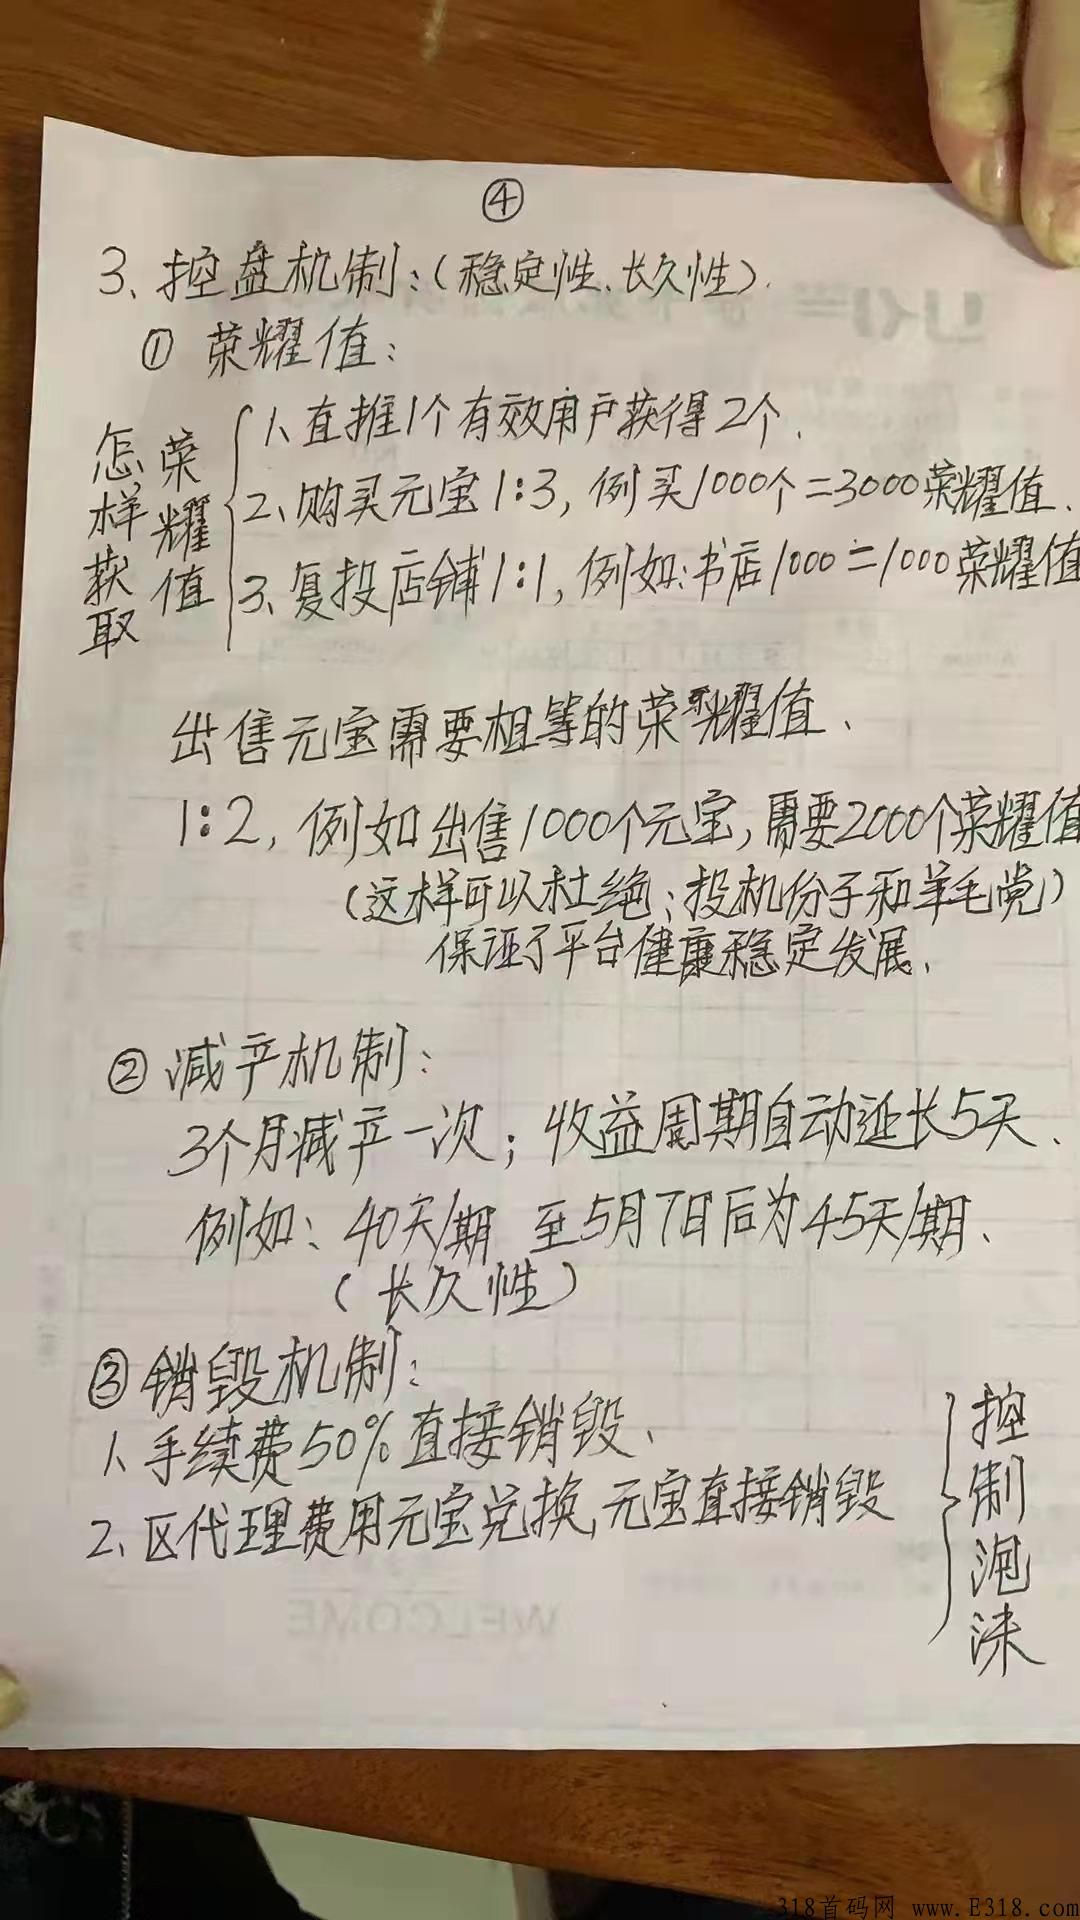 ④
3、控盘机制：(稳定性、长久性)
① 荣耀值：
怎样获取
荣耀值
1、直推1个有效用户获得2个.
2、购买元宝1:3, 例买1000个=3000荣耀值.
3、复投店铺1:1, 例如:书店1000=1000荣耀值
出售元宝需要相等的荣耀值.
1:2, 例如出售1000个元宝,需要2000个荣耀值
(这样可以杜绝;投机份子和羊毛党)
保证了平台健康稳定发展.
② 减产机制：
3个月减产一次；收益周期自动延长5天.
例如：40天/期 至5月7日后为45天/期.
(长久性)
③ 销毁机制：
1、手续费50%直接销毁、
2、区代理费用元宝兑换,元宝直接销毁
控制泡沫
WELCOME
318首码网 www.E318.com